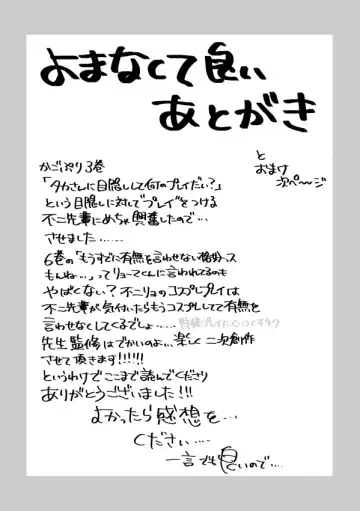 よまなくて良い
あとがき
と
おまけ
次ペ〜〜ジ
かごぷり3巻
「タカさんに目隠しして何のプレイだい?」
という目隠しに対して"プレイ"をつける
不二先輩にめちゃ興奮したので…
させました……
6巻の「もうすでに有無を言わせない格好っス
もんね…」ってリョーマくんに言われてるのも
やばくない?不二リョのコスプレプレイは
不二先輩が気付いたらもうコスプレしてて有無を
言わせなくしてくるでしょ……
先生監修はでかいのよ…楽しく二次創作
させて頂きます!!!!!!
というわけでここまで読んでくださり
ありがとうございました!!!
よかったら感想を…
ください……
一言でも良いので……